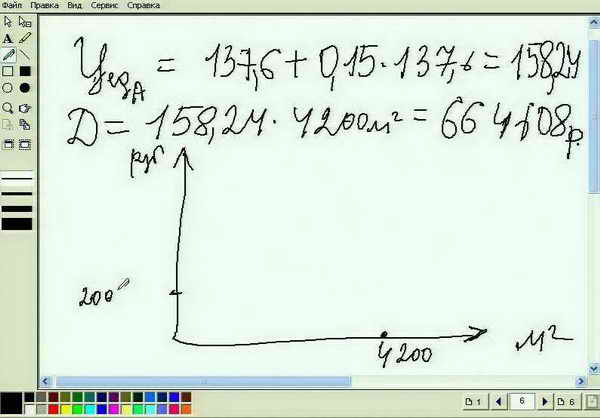 Файл Правка Вид Сервис Справка
A
Цед A = 137,6 + 0,15 · 137,6 = 158,24
D = 158,24 · 4200 м² = 664608 р.
руб
4200
м²
1 6 6